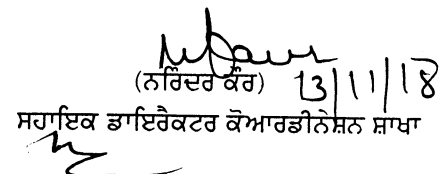 (ਨਰਿੰਦਰ ਕੌਰ) 13/11/18
ਸਹਾਇਕ ਡਾਇਰੈਕਟਰ ਕੋਆਰਡੀਨੇਸ਼ਨ ਸ਼ਾਖਾ